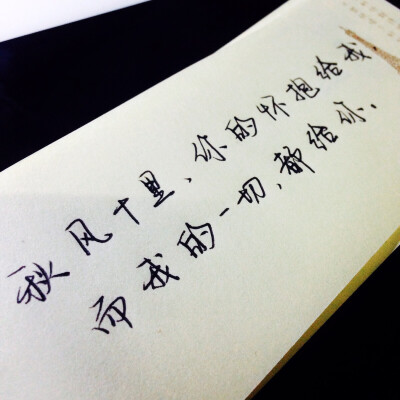 秋风十里、你的怀抱给我
而我的一切,都给你.